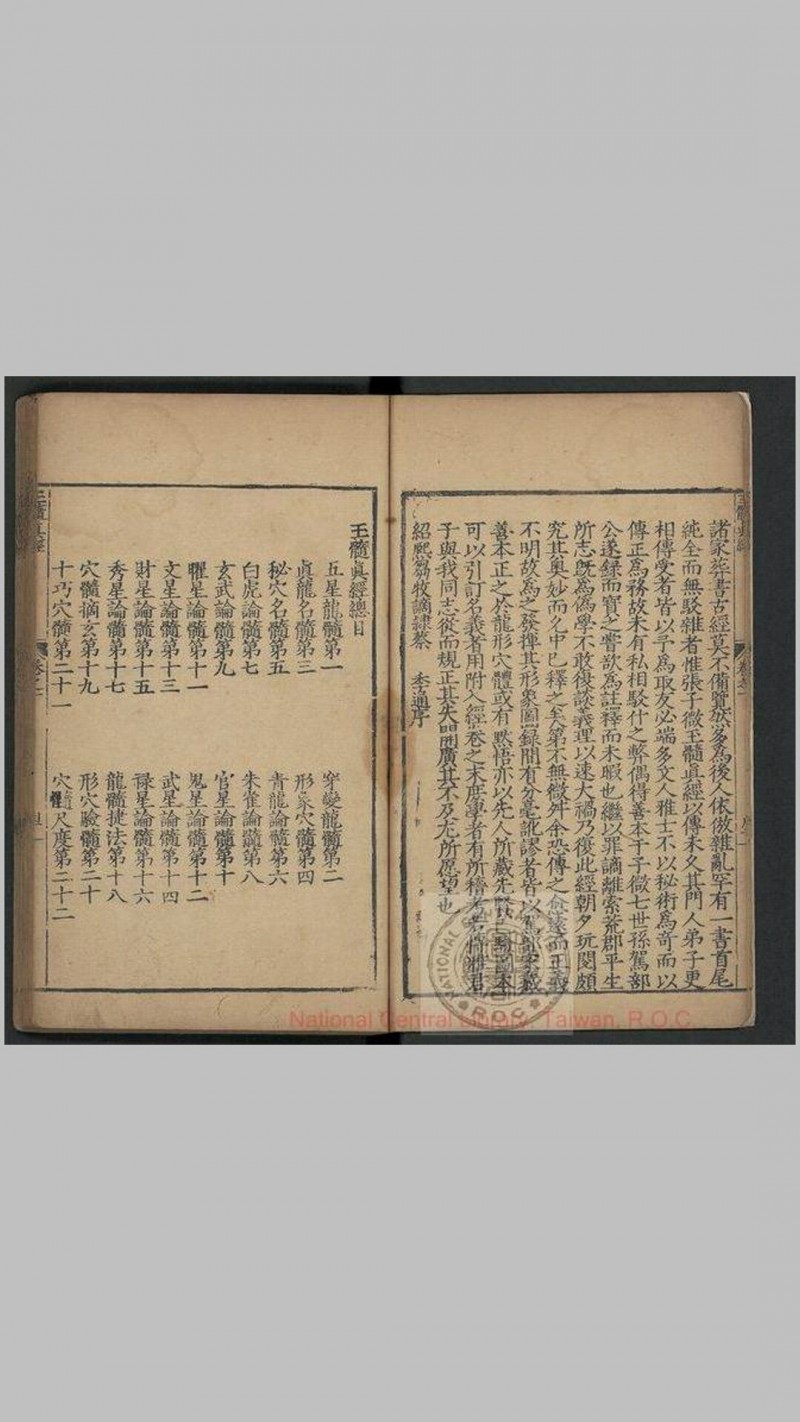 諸家葬書古經莫不備覽然多為後人依倣雜亂罕有一書首尾
純全而無駁雜者惟張子微玉髓眞經以傳未久其門人弟子更
相傳受者皆以予為取友必端多文人雅士不以秘術為奇而以
傳正為務故未有私相駁什之弊偶得善本于子微七世孫駕部
公遂録而寶之嘗欲為註釋而未暇也繼以罪謫離索荒郡平生
所志既為偽學不敢復談義理以速大禍乃復此經朝夕玩閱頗
究其奥妙而允中已釋之矣第不無微舛余恐傳之愈遠而正義
不明故為之發揮其形象圖録間有分毫訛謬者皆以
善本正之於龍形穴體或有默悟亦以先人所藏先賢
可以引訂名義者用附入經卷之末庶學者有所稽考
子與我同志從而規正其失品開廣其不及尤所愿望也
紹熙 牧謫隷蔡 季通序
玉髓眞經總目
五星龍髓第一 穿變龍髓第二
眞龍名髓第三 形象穴髓第四
秘穴名髓第五 青龍論髓第六
白虎論髓第七 朱雀論髓第八
玄武論髓第九 官星論髓第十
曜星論髓第十一 鬼星論髓第十二
文星論髓第十三 武星論髓第十四
財星論髓第十五 禄星論髓第十六
秀星論髓第十七 龍髓捷法第十八
穴髓摘玄第十九 形穴驗髓第二十
十巧穴髓第二十一 穴髓尺度第二十二
玉髓眞經
National Central Library, Taiwan, R.O.C.